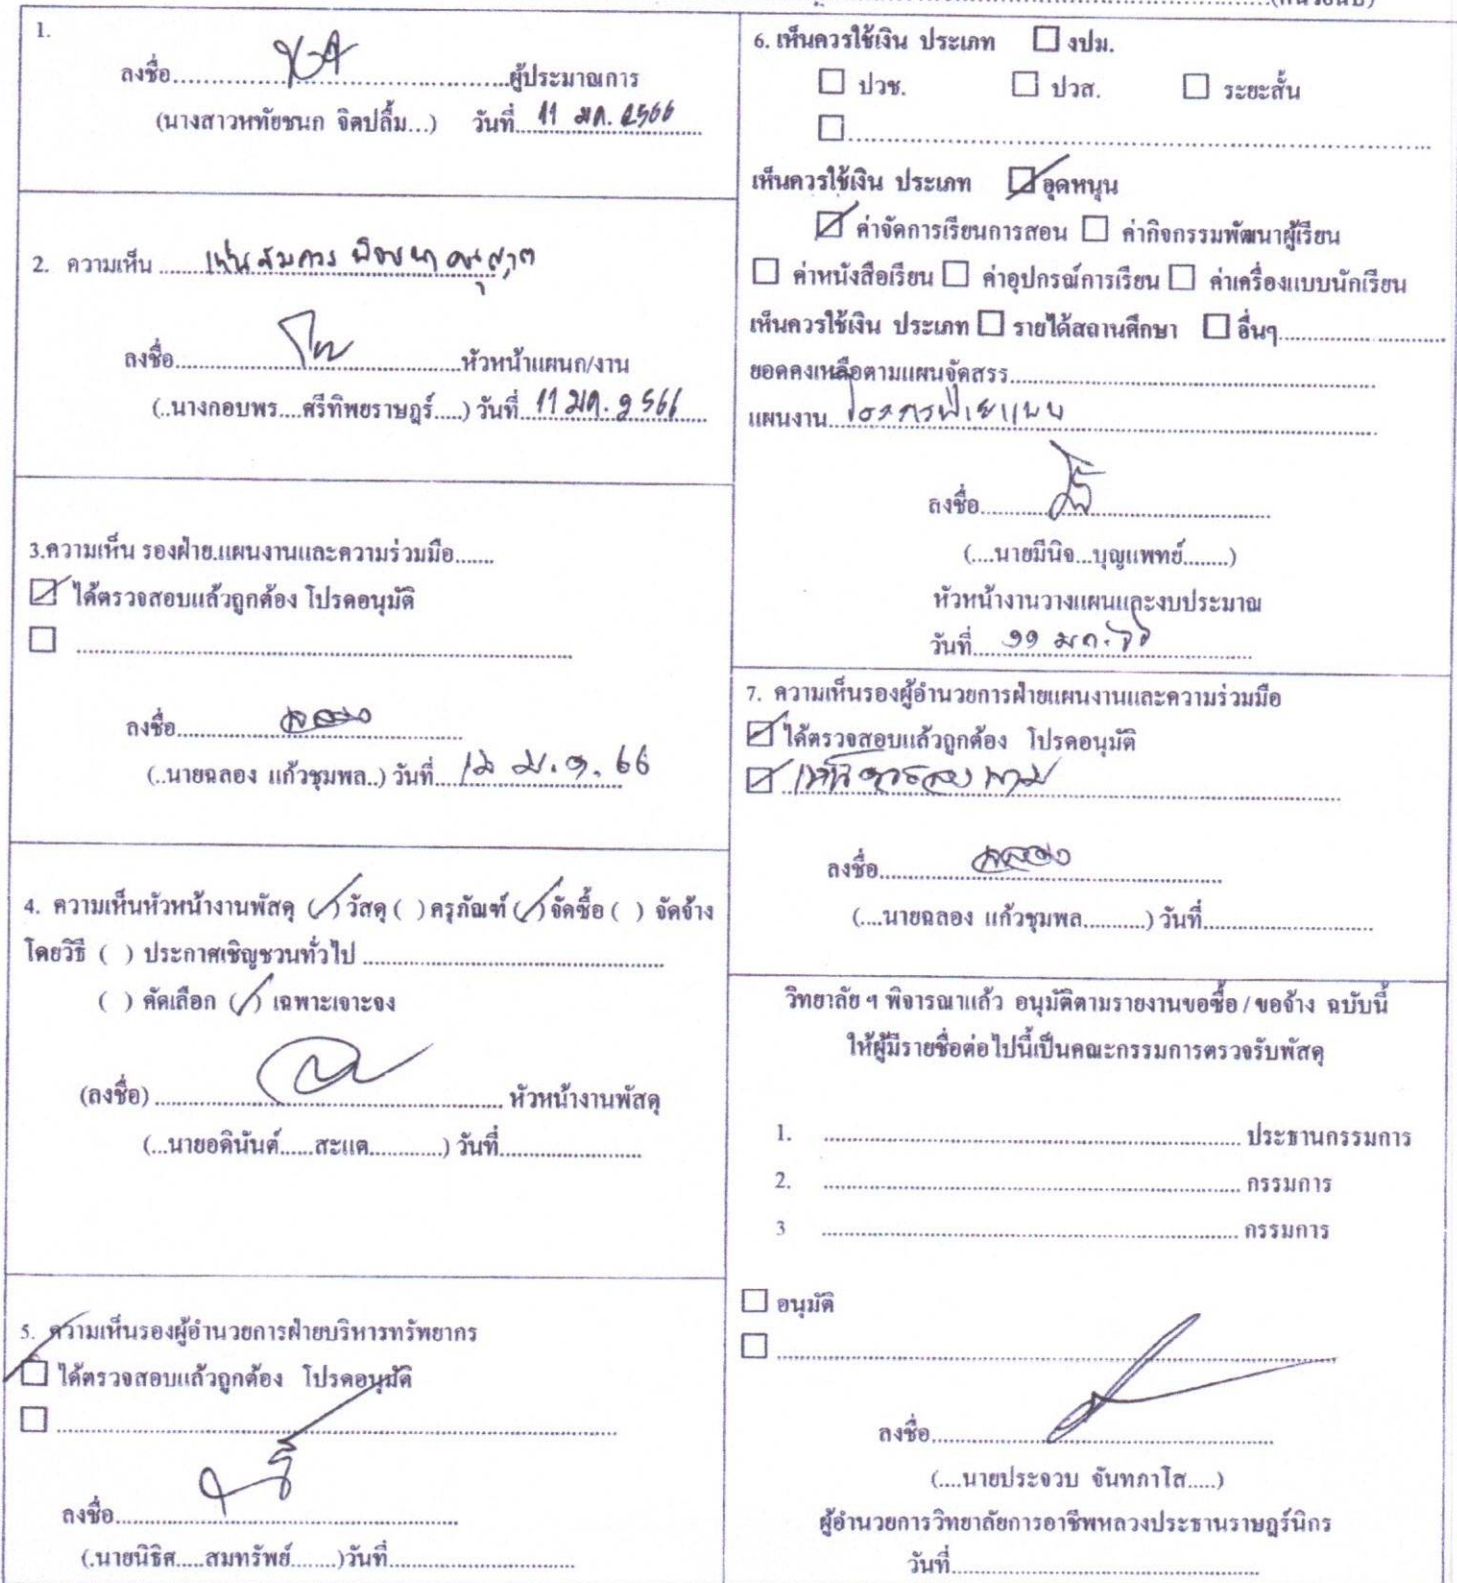 1.
ลงชื่อ..............................ผู้ประมาณการ
(นางสาวหทัยชนก จิตปลื้ม...) วันที่ 11 มค. 2566
2. ความเห็น ..... เห็นสมควร พิจารณาอนุญาต
ลงชื่อ..............................หัวหน้าแผนก/งาน
(..นางกอบพร....ศรีทิพยราษฎร์.....) วันที่ 11 มค. 2566
3.ความเห็น รองฝ่าย.แผนงานและความร่วมมือ.......
☑ ได้ตรวจสอบแล้วถูกต้อง โปรดอนุมัติ
☐ ..............................
ลงชื่อ..............................
(..นายฉลอง แก้วชุมพล..) วันที่ ๑๒ ม.ค. 66
4. ความเห็นหัวหน้างานพัสดุ (/) วัสดุ ( ) ครุภัณฑ์ (/) จัดซื้อ ( ) จัดจ้าง
โดยวิธี ( ) ประกาศเชิญชวนทั่วไป ..............................
( ) คัดเลือก (/) เฉพาะเจาะจง
(ลงชื่อ) .............................. หัวหน้างานพัสดุ
(...นายอดินันต์......สะแต............) วันที่..............................
5. ความเห็นรองผู้อำนวยการฝ่ายบริหารทรัพยากร
☑ ได้ตรวจสอบแล้วถูกต้อง โปรดอนุมัติ
☐ ..............................
ลงชื่อ..............................
(.นายนิธิศ.....สมทรัพย์.......)วันที่..............................
6. เห็นควรใช้เงิน ประเภท ☐ งปม.
☐ ปวช. ☐ ปวส. ☐ ระยะสั้น
☐..............................
เห็นควรใช้เงิน ประเภท ☑ อุดหนุน
☑ ค่าจัดการเรียนการสอน ☐ ค่ากิจกรรมพัฒนาผู้เรียน
☐ ค่าหนังสือเรียน ☐ ค่าอุปกรณ์การเรียน ☐ ค่าเครื่องแบบนักเรียน
เห็นควรใช้เงิน ประเภท ☐ รายได้สถานศึกษา ☐ อื่นๆ..............................
ยอดคงเหลือตามแผนจัดสรร..............................
แผนงาน
ลงชื่อ..............................
(....นายมีนิจ...บุญแพทย์........)
หัวหน้างานวางแผนและงบประมาณ
วันที่ ๑๑ มค.
7. ความเห็นรองผู้อำนวยการฝ่ายแผนงานและความร่วมมือ
☑ ได้ตรวจสอบแล้วถูกต้อง โปรดอนุมัติ
☑ เห็นควรลงนาม
ลงชื่อ..............................
(....นายฉลอง แก้วชุมพล...........) วันที่..............................
วิทยาลัย ฯ พิจารณาแล้ว อนุมัติตามรายงานขอซื้อ / ขอจ้าง ฉบับนี้
ให้ผู้มีรายชื่อต่อไปนี้เป็นคณะกรรมการตรวจรับพัสดุ
1. .............................. ประธานกรรมการ
2. .............................. กรรมการ
3 .............................. กรรมการ
☐ อนุมัติ
☐ ..............................
ลงชื่อ..............................
(....นายประจวบ จันทกาโส.....)
ผู้อำนวยการวิทยาลัยการอาชีพหลวงประธานราษฎร์นิกร
วันที่..............................